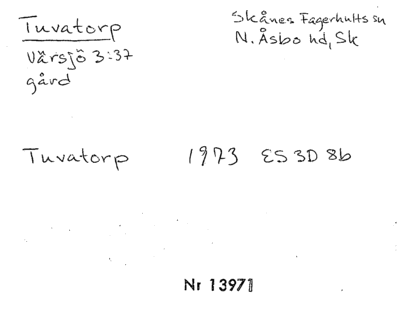 Tuvatorp
Värsjö 3:37
gård
Skånes Fagerhults sn
N. Åsbo hd, Sk
Tuvatorp 1973 ES 3D 8b
Nr 13971